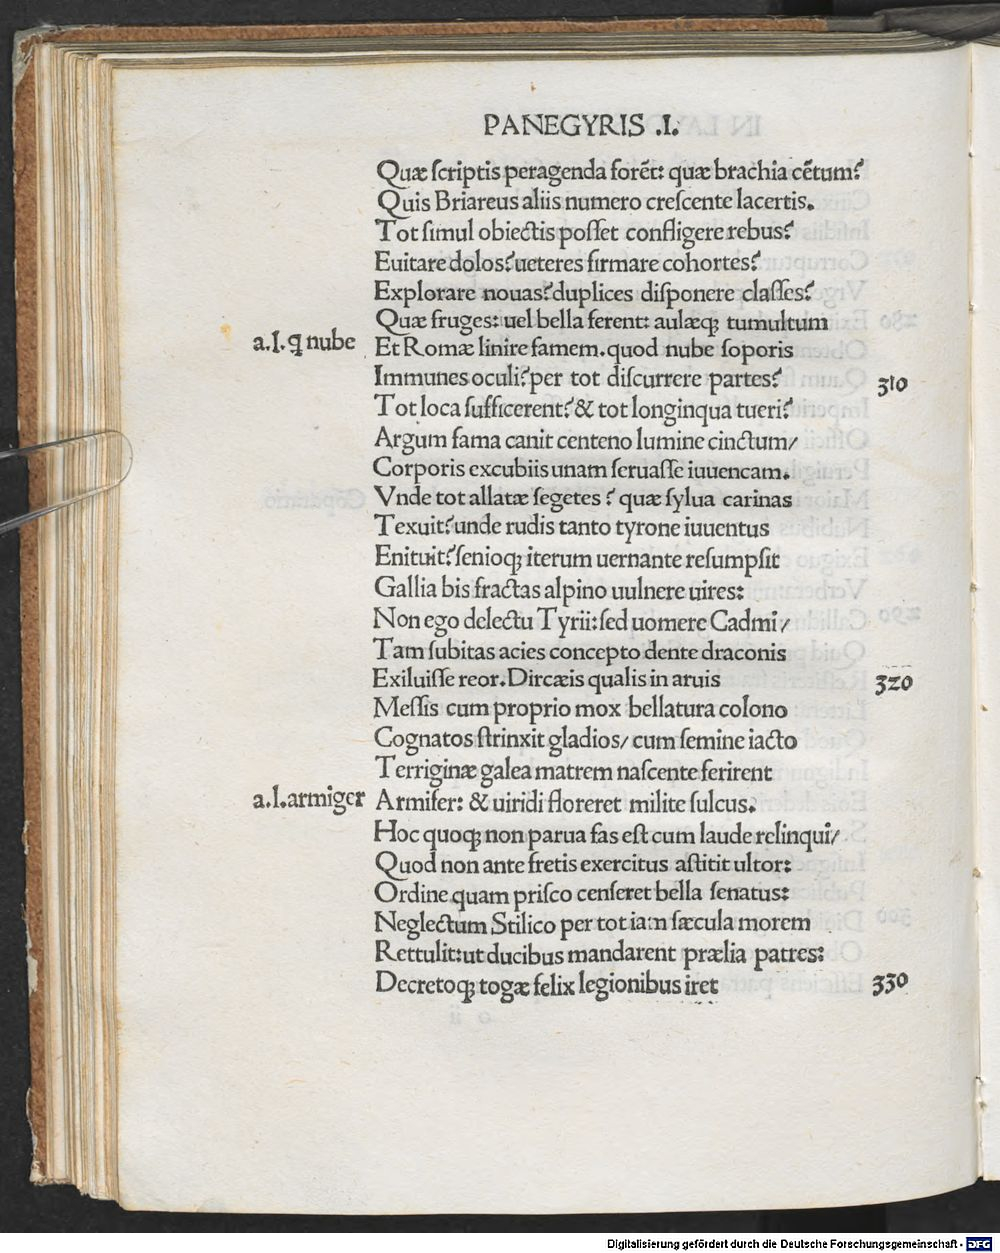 PANEGYRIS .I.
Quæ ſcriptis peragenda forẽt: quæ brachia cẽtum?
Quis Briareus aliis numero creſcente lacertis.
Tot ſimul obiectis poſſet confligere rebus?
Euitare dolos? ueteres firmare cohortes?
Explorare nouas? duplices diſponere claſſes?
Quæ fruges: uel bella ferent: aulæqꝫ tumultum
a.I. q nube Et Romæ linire famem. quod nube ſoporis
Immunes oculi? per tot diſcurrere partes? 310
Tot loca ſufficerent? & tot longinqua tueri?
Argum fama canit centeno lumine cinctum/
Corporis excubiis unam ſeruaſſe iuuencam.
Vnde tot allatæ ſegetes? quæ ſylua carinas
Texuit? unde rudis tanto tyrone iuuentus
Enituit? ſenioqꝫ iterum uernante reſumpſit
Gallia bis fractas alpino uulnere uires:
Non ego delectu Tyrii: ſed uomere Cadmi/
Tam ſubitas acies concepto dente draconis
Exiluiſſe reor. Dircæis qualis in aruis 320
Meſſis cum proprio mox bellatura colono
Cognatos ſtrinxit gladios/ cum ſemine iacto
Terriginæ galea matrem naſcente ferirent
a.I. armiger Armifer: & uiridi floreret milite ſulcus.
Hoc quoqꝫ non parua fas eſt cum laude relinqui/
Quod non ante fretis exercitus aſtitit ultor:
Ordine quam priſco cenſeret bella ſenatus:
Neglectum Stilico per tot iam ſæcula morem
Rettulit: ut ducibus mandarent prælia patres:
Decretoqꝫ togæ felix legionibus iret 330
Digitalisierung gefördert durch die Deutsche Forschungsgemeinschaft - DFG